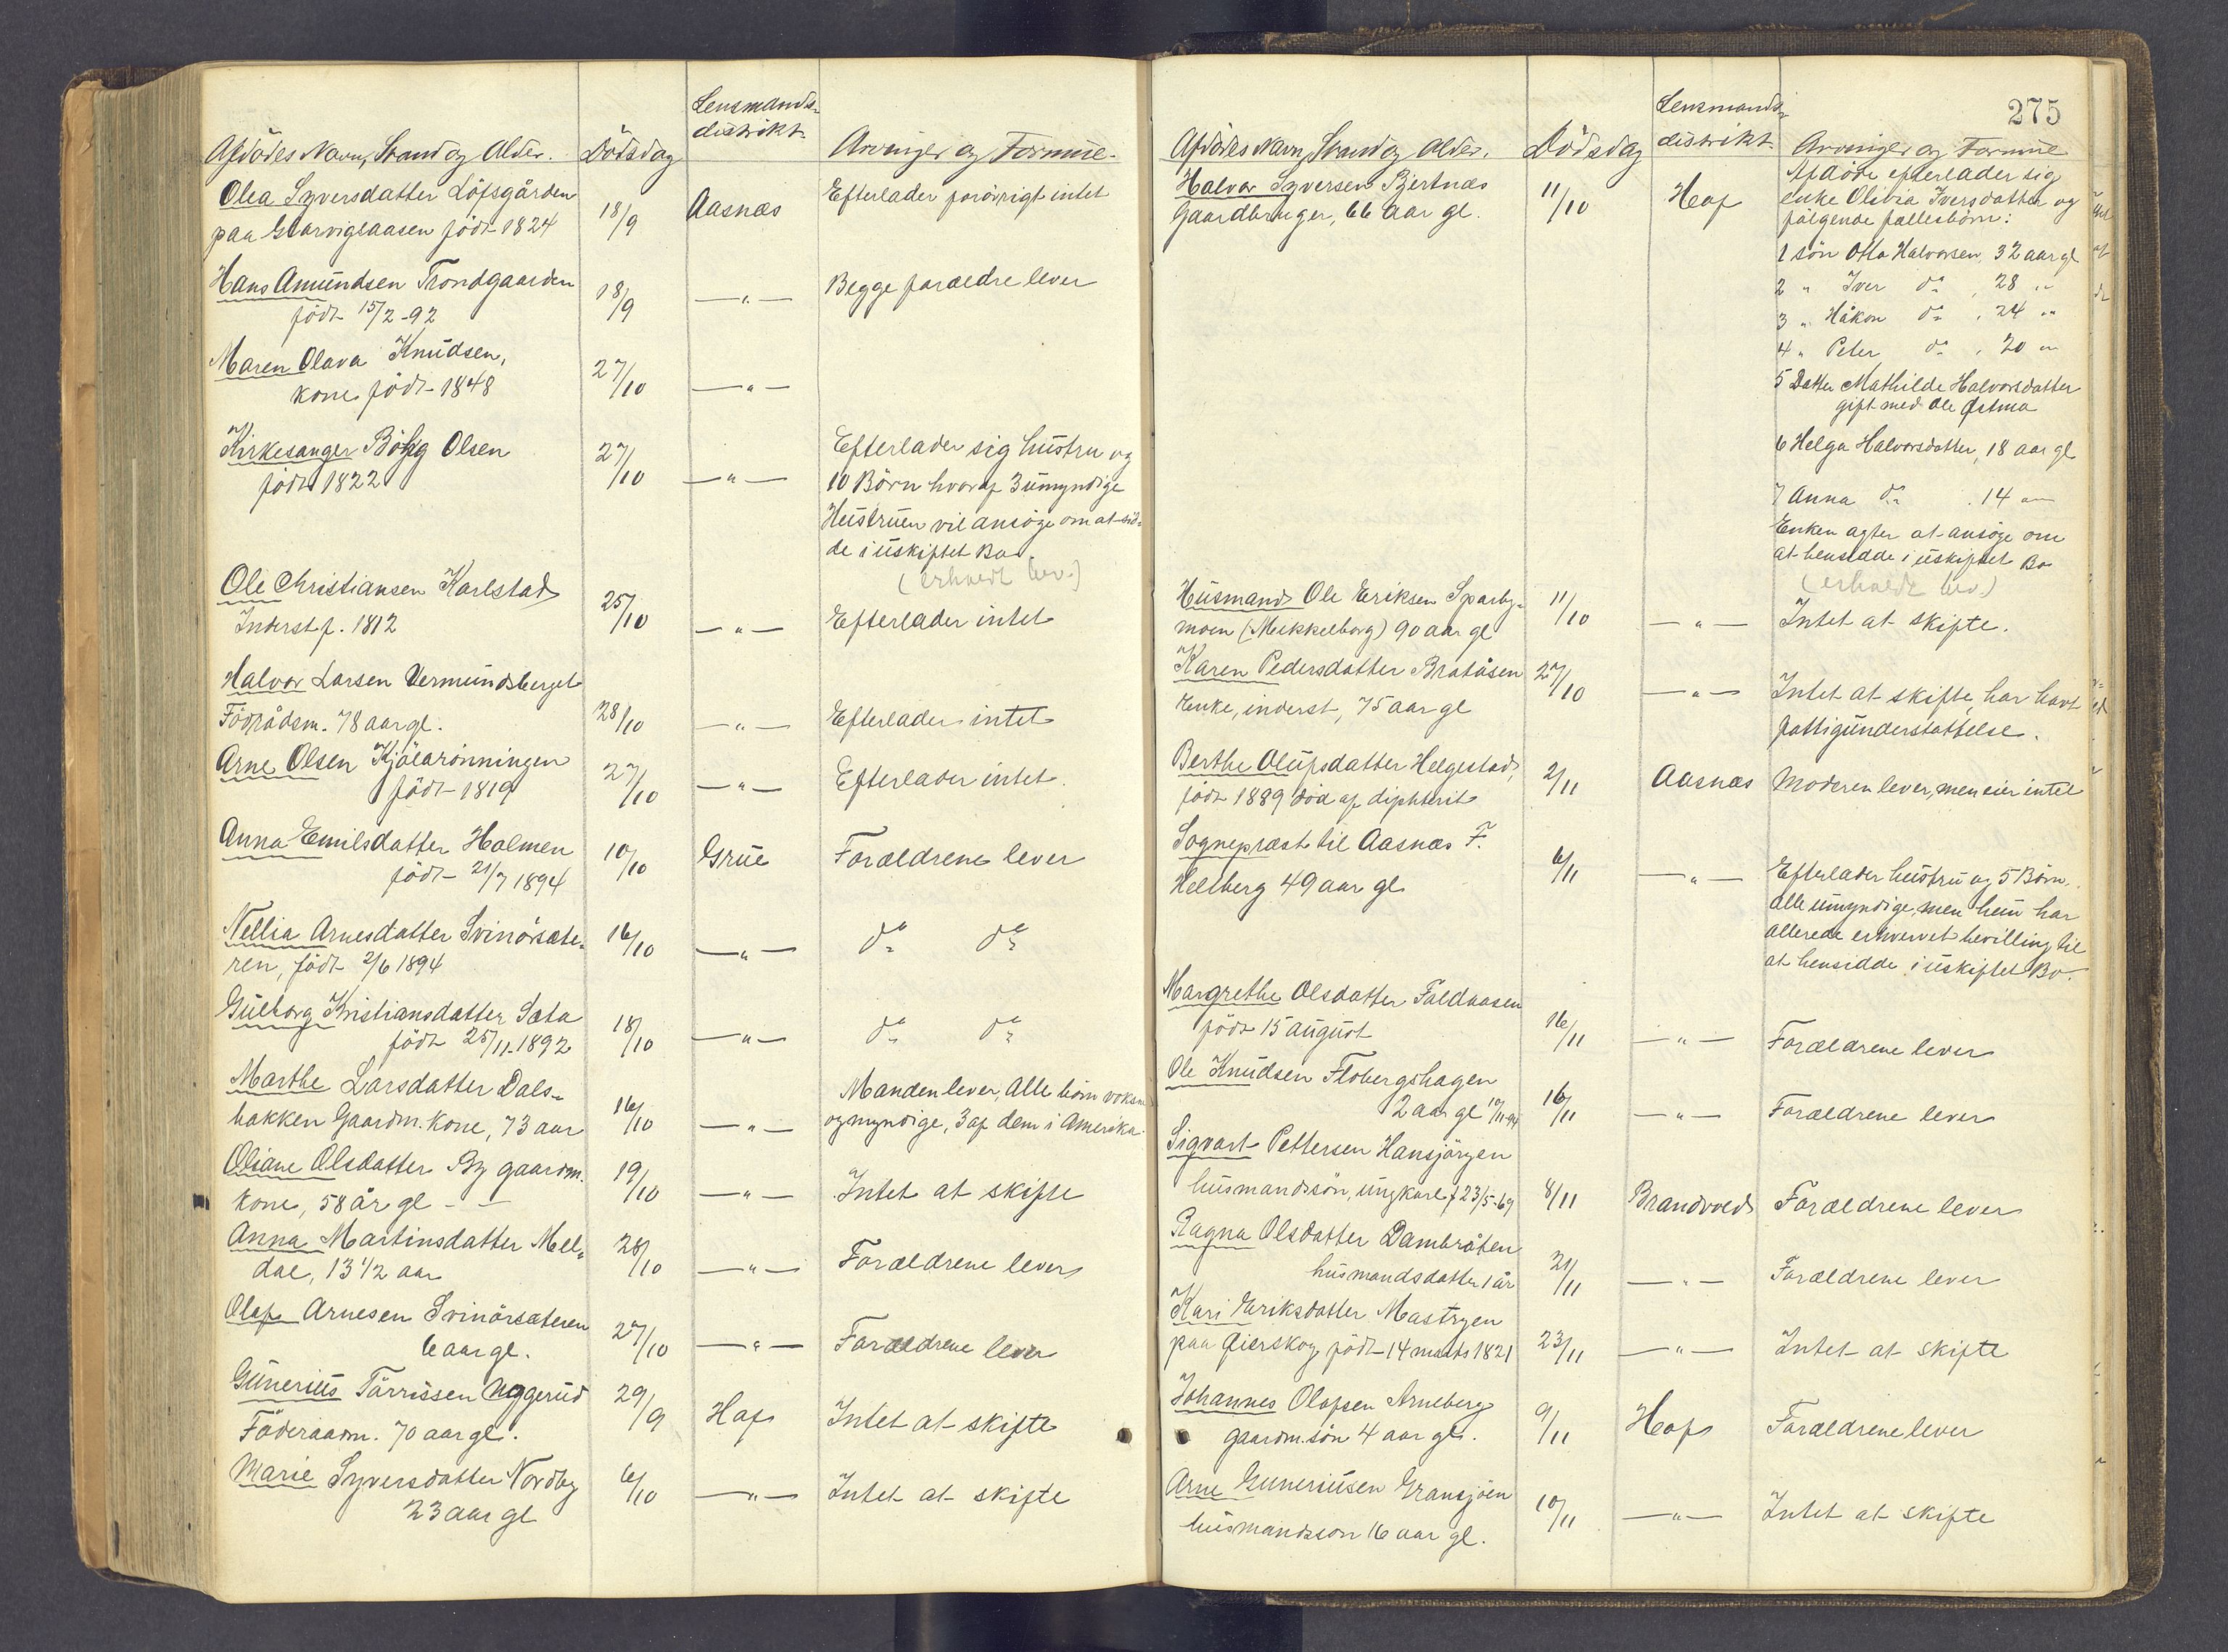 Afdödes Navn, Stand og Alder. Dödsdag Lensmands-
distrikt. Arvinger og Formue.
Olea Syversdatter Löfsgården 18/9 Aasnæs Efterlader forövrigt intet
paa födt 1824
Hans Amundsen Trondgaarden 18/9 —"— Begge forældre lever
födt 15/2-92
Maren Olava Knudsen, 27/10 —"—
kone födt 1848
Kirkesanger Olsen 27/10 —"— Efterlader sig hustru og
födt 1822 10 Börn hvoraf 3 umyndige
Hustruen vil ansöge om at sid-
de i uskiftet Bo.
(erholdt bev.)
Ole Christiansen Karlstad 25/10 —"— Efterlader intet
Inderst f. 1812
Halvor Larsen Vermundsberget
Föderådsm. 78 aar gl. 28/10 —"— Efterlader intet
Arne Olsen Kjölarönningen 27/10 —"— Efterlader intet.
födt 1819
Anna Emilsdatter Holmen 10/10 Grue Forældrene lever
födt 21/7 1894
Nellia Arnesdatter Svinörsæte- 16/10 —"— do do
ren, födt 2/6 1894
Gulborg Kristiansdatter Sæta 18/10 —"— do do
födt 25/11-1892
Marthe Larsdatter Dals- 16/10 —"— Manden lever, Alle börn voksne
bakken Gaardm. kone, 73 aar og myndige, 3 af dem i Amerika.
Oliane Olsdatter By gaardm. 19/10 —"— Intet at skifte
kone, 58 år gl - -
Anna Martinsdatter Mel- 28/10 —"— Forældrene lever
dal, 13 1/2 aar
Olaf Arnesen Svinörsæteren 27/10 —"— Forældrene lever
6 aar gl.
Gunerius Tørrissen Uggerud 29/9 Hof Intet at skifte
Föderaadm. 70 aar gl.
Marie Syversdatter Nordby 6/10 —"— Intet at skifte
23 aar gl
275
Afdödes Navn, Stand og Alder. Dödsdag Lensmands-
distrikt. Arvinger og Formue
Halvor Syversen Bjertnæs 11/10 Hof Afdöde efterlader sig
Gaardbruger, 66 aar gl. enke Olivia Iversdatter og
fölgende fællesbörn:
1 sön Otto Halvorsen, 32 aar gl
2 " Iver do , 28 "
3 " Håkon do , 24 "
4 " Peter do , 20 "
5 Datter Mathilde Halvorsdatter
gift med Ole Østmo
6 Helga Halvorsdatter, 18 aar gl
7 Anna do . 14 "
Enken agter at ansöge om
at hensidde i uskiftet Bo
(erholdt bev.)
Husmand Ole Eriksen Sparby- 11/10 —"— Intet at skifte.
moen (Mekkelborg) 90 aar gl
Karen Pedersdatter Bratåsen 27/10 —"— Intet at skifte, har havt
Enke, inderst, 75 aar gl fattigunderstøttelse.
Berthe Olufsdatter Helgestad, 2/11 Aasnæs Moderen lever, men eier intet
födt 1889 död af diphterit
Sogneprest til Aasnæs F. 6/11 —"— Efterlader hustru og 5 Börn.
Heltberg 49 aar gl. alle umyndige, men hun har
allerede erhvervet bevilling til
at hensidde i uskiftet Bo.
Margrethe Olsdatter Faldaasen 16/11 —"— Forældrene lever
födt 15 august
Ole Knudsen Flobergshagen 16/11 —"— Forældrene lever
2 aar gl
Sigvart Pettersen Hansjörgen
husmandssön, ungkarl f 23/5-69 8/11 Brandvold Forældrene lever
Ragna Olsdatter Dambråten 21/11 —"— Forældrene lever
husmandsdatter 1 år
Kari Eriksdatter Mastryen
paa Eierskog födt 14 marts 1821 23/11 —"— Intet at skifte
Johannes Olafsen Arneberg 9/11 Hof Forældrene lever
gaardm. sön 4 aar gl.
Arne Guneriusen Gransjöen 10/11 —"— Intet at skifte
husmandssön 16 aar gl.